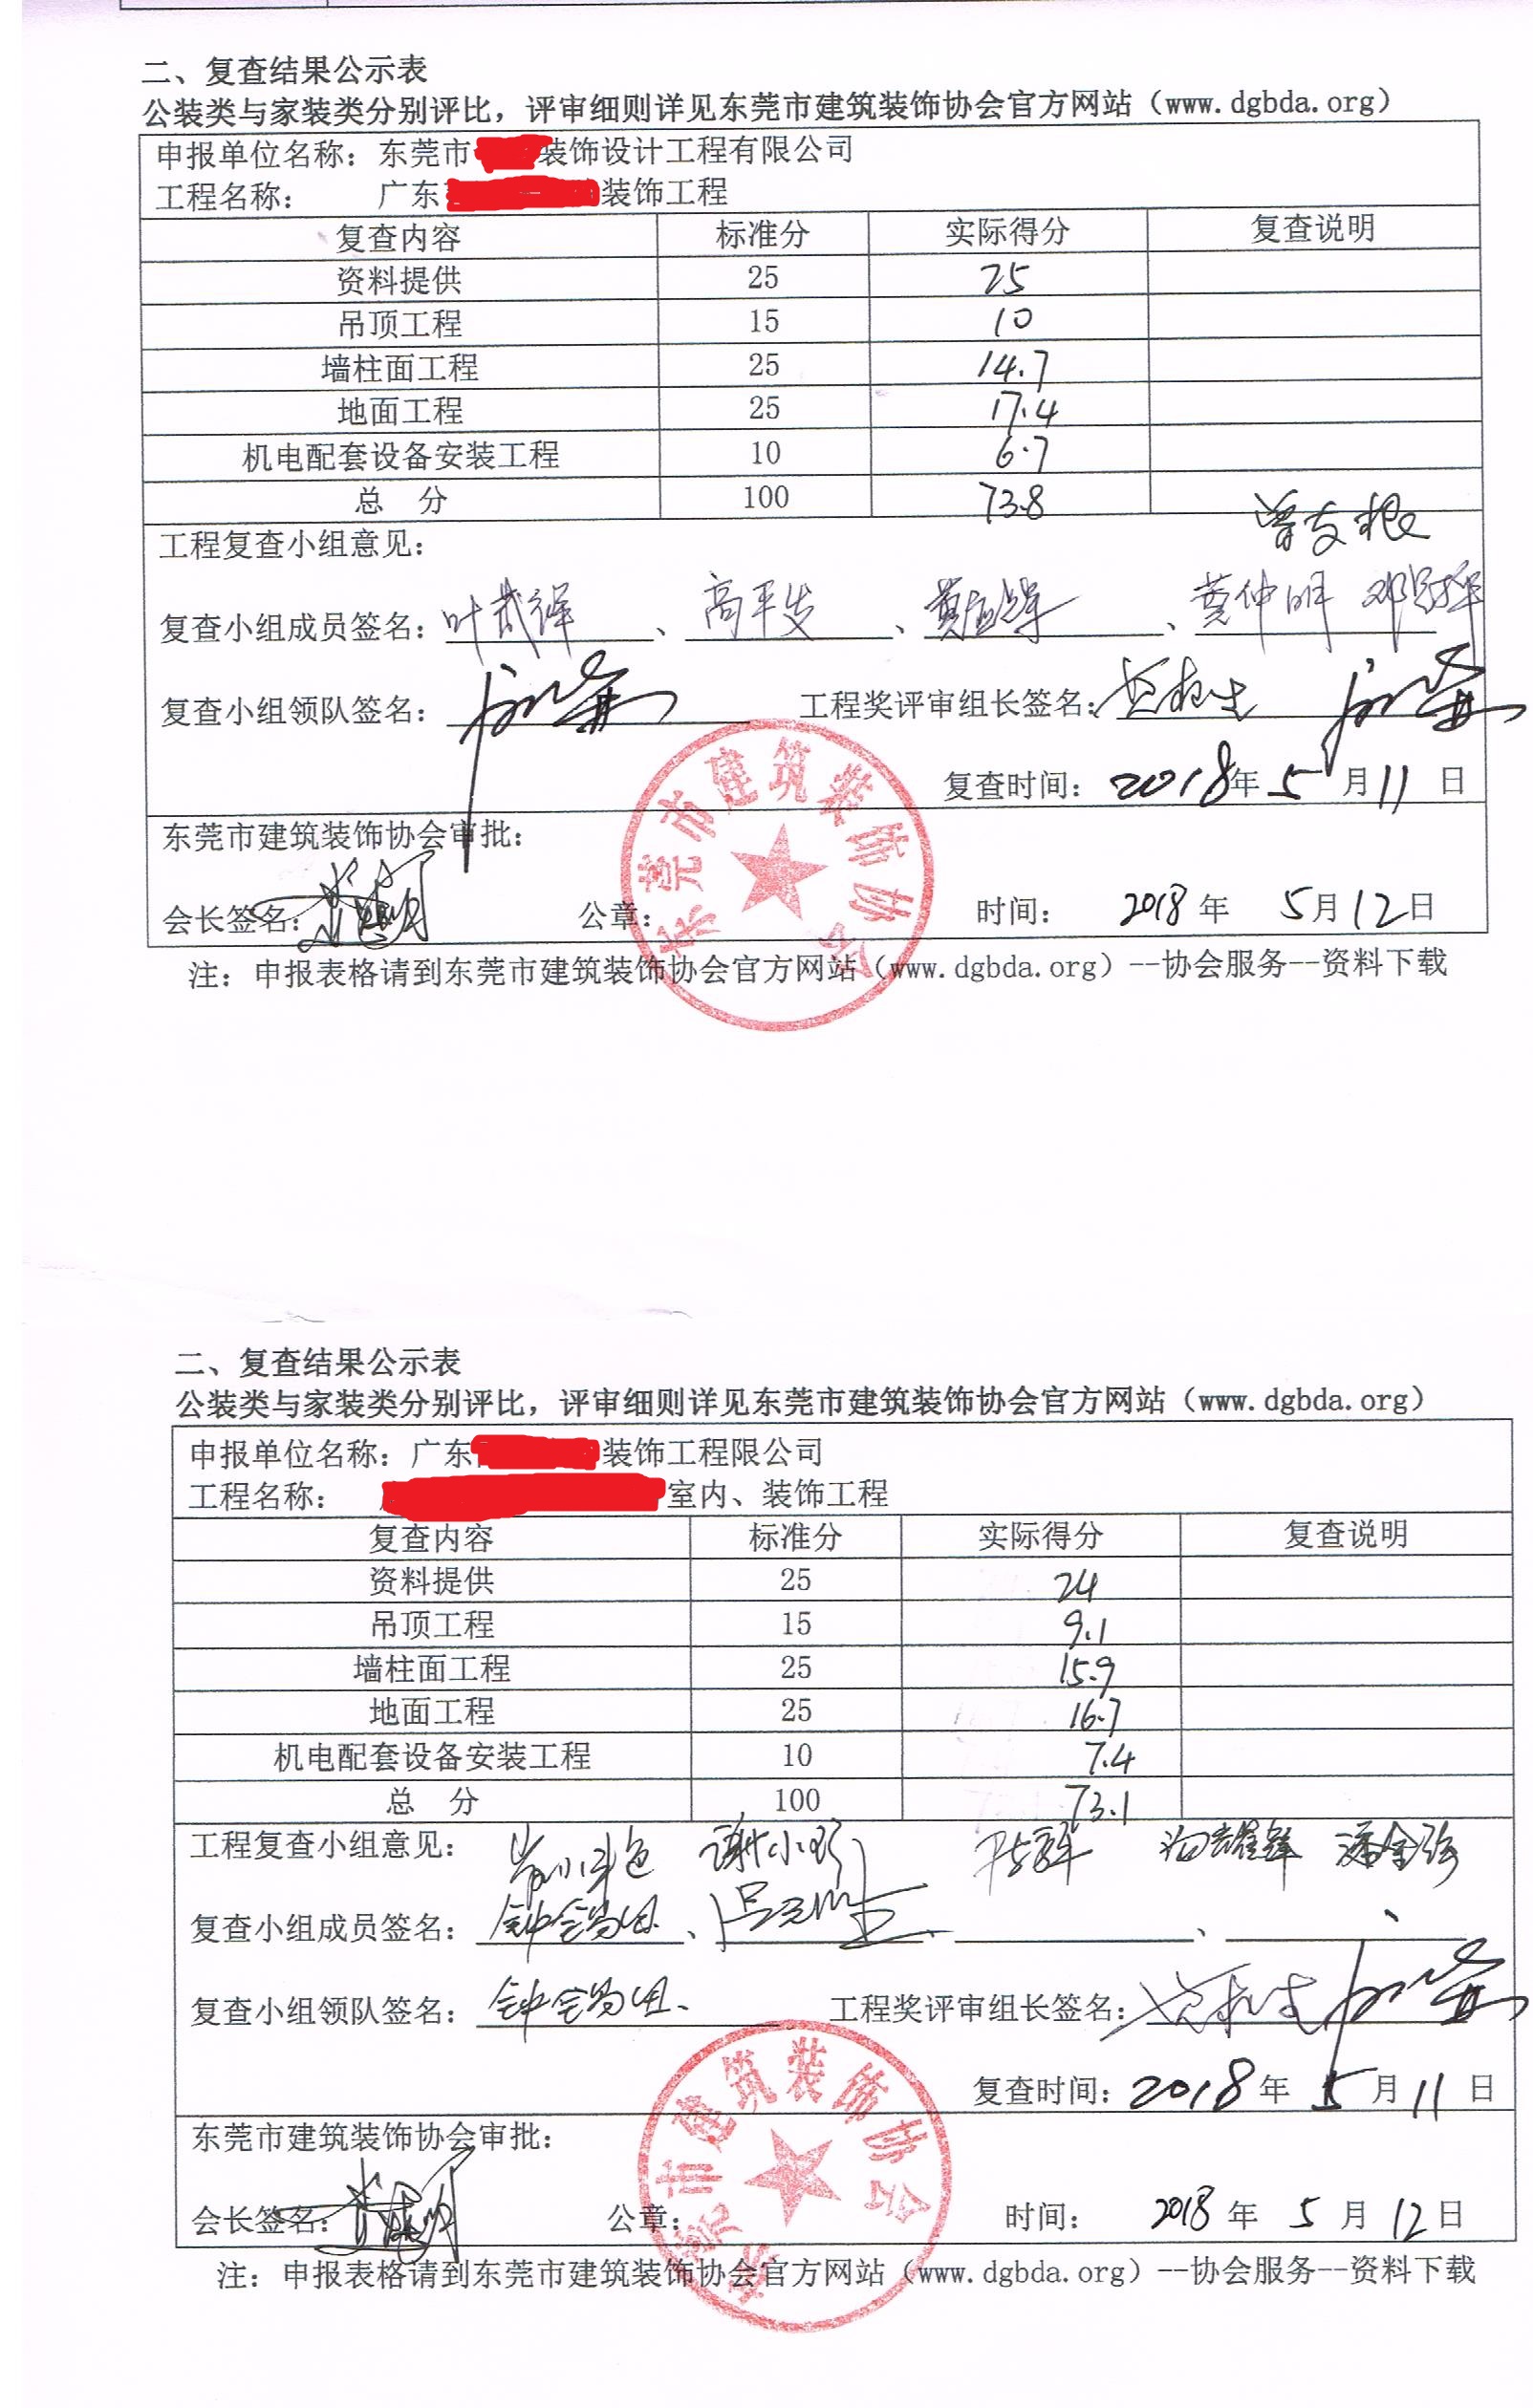 二、复查结果公示表
公装类与家装类分别评比，评审细则详见东莞市建筑装饰协会官方网站（www.dgbda.org）
申报单位名称：东莞市 装饰设计工程有限公司
工程名称： 广东 装饰工程
复查内容 标准分 实际得分 复查说明
资料提供 25 25
吊顶工程 15 10
墙柱面工程 25 14.7
地面工程 25 17.4
机电配套设备安装工程 10 6.7
总 分 100 73.8
工程复查小组意见：
复查小组成员签名： 、高平发 、 、莫仲明
复查小组领队签名： 工程奖评审组长签名：
复查时间：2018年 5 月 11 日
东莞市建筑装饰协会审批：
会长签名： 公章： 时间： 2018 年 5月12日
东莞市建筑装饰协会
注：申报表格请到东莞市建筑装饰协会官方网站（www.dgbda.org）--协会服务--资料下载
二、复查结果公示表
公装类与家装类分别评比，评审细则详见东莞市建筑装饰协会官方网站（www.dgbda.org）
申报单位名称：广东 装饰工程限公司
工程名称： 室内、装饰工程
复查内容 标准分 实际得分 复查说明
资料提供 25 24
吊顶工程 15 9.1
墙柱面工程 25 15.9
地面工程 25 16.7
机电配套设备安装工程 10 7.4
总 分 100 73.1
工程复查小组意见：
复查小组成员签名： 、 、 、
复查小组领队签名： 工程奖评审组长签名：
复查时间：2018年 5 月 11 日
东莞市建筑装饰协会审批：
会长签名： 公章： 时间： 2018 年 5 月 12日
东莞市建筑装饰协会
注：申报表格请到东莞市建筑装饰协会官方网站（www.dgbda.org）--协会服务--资料下载